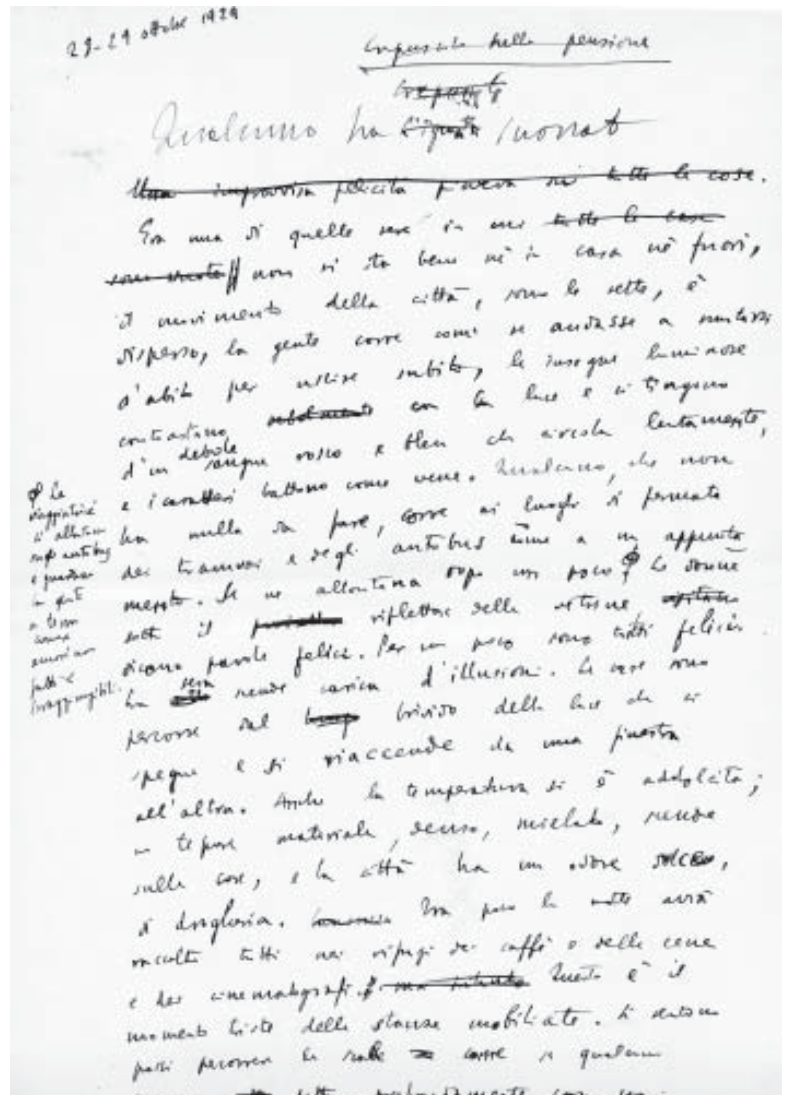 28-29 ottobre 1929
Crepuscolo nella pensione
Qualcuno ha suonato
Una improvvisa felicità pareva su tutte le cose.
Era una di quelle sere in cui tutte le case
sono vuote non si sta bene nè in casa nè fuori,
il movimento della città, sono le sette, è
disperso, la gente corre come se andasse a mutarsi
d'abito per uscire subito, le insegne luminose
contrastano con la luce e si tingono
d'un debole sangue rosso e bleu che circola lentamente,
e i caratteri battono come vene. Qualcuno, che non
ha nulla da fare, corre ai luoghi di fermata
dei tramvai e degli autobus come a un appunta
mento. Se ne allontana dopo un poco. Le donne
sotto il riflettore delle vetrine
dicono parole felici. Per un poco sono tutti felici.
La sera scende carica d'illusioni. Le case sono
percorse dal brivido della luce che si
spegne e si riaccende da una finestra
all'altra. Anche la temperatura si è addolcita;
un tepore materiale, denso, mielato, scende
sulle cose, e la città ha un odore dolce,
di drogheria. Tra poco la notte avrà
raccolto tutti nei rifugi dei caffè o delle cene
e dei cinematografi. Questo è il
momento triste delle stanze mobiliate. Si sentono
passi percorrere le scale come se qualcuno
La
viaggiatrici
si allontanano
sugli autobus
e guardano
la gente
a terra
come
amori non
fatti e
irraggiungibili.